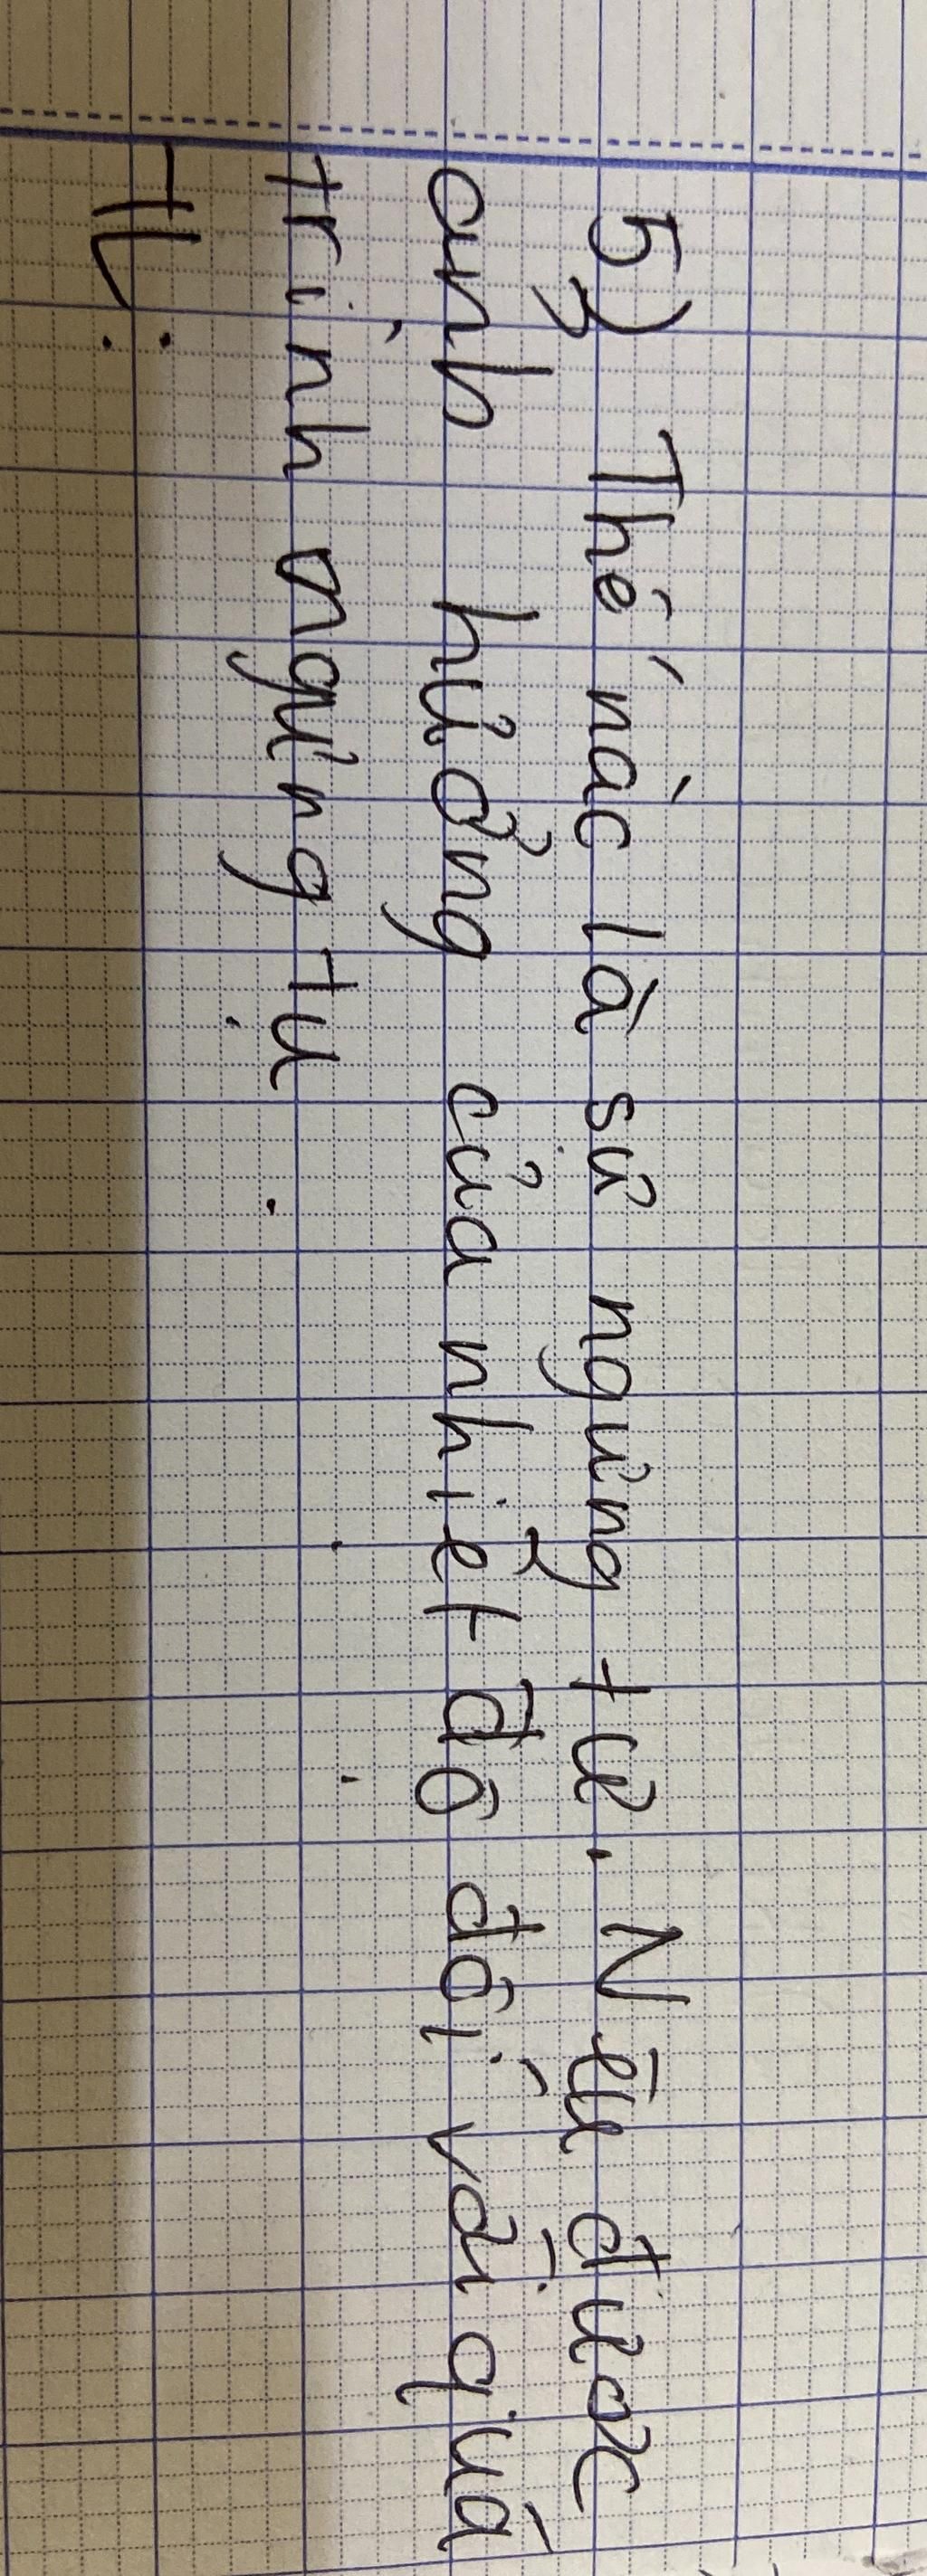 5) Thế nào là sự ngưng tụ. Nếu được
ảnh hưởng của nhiệt độ đối với quá
trình ngưng tụ.
TL: